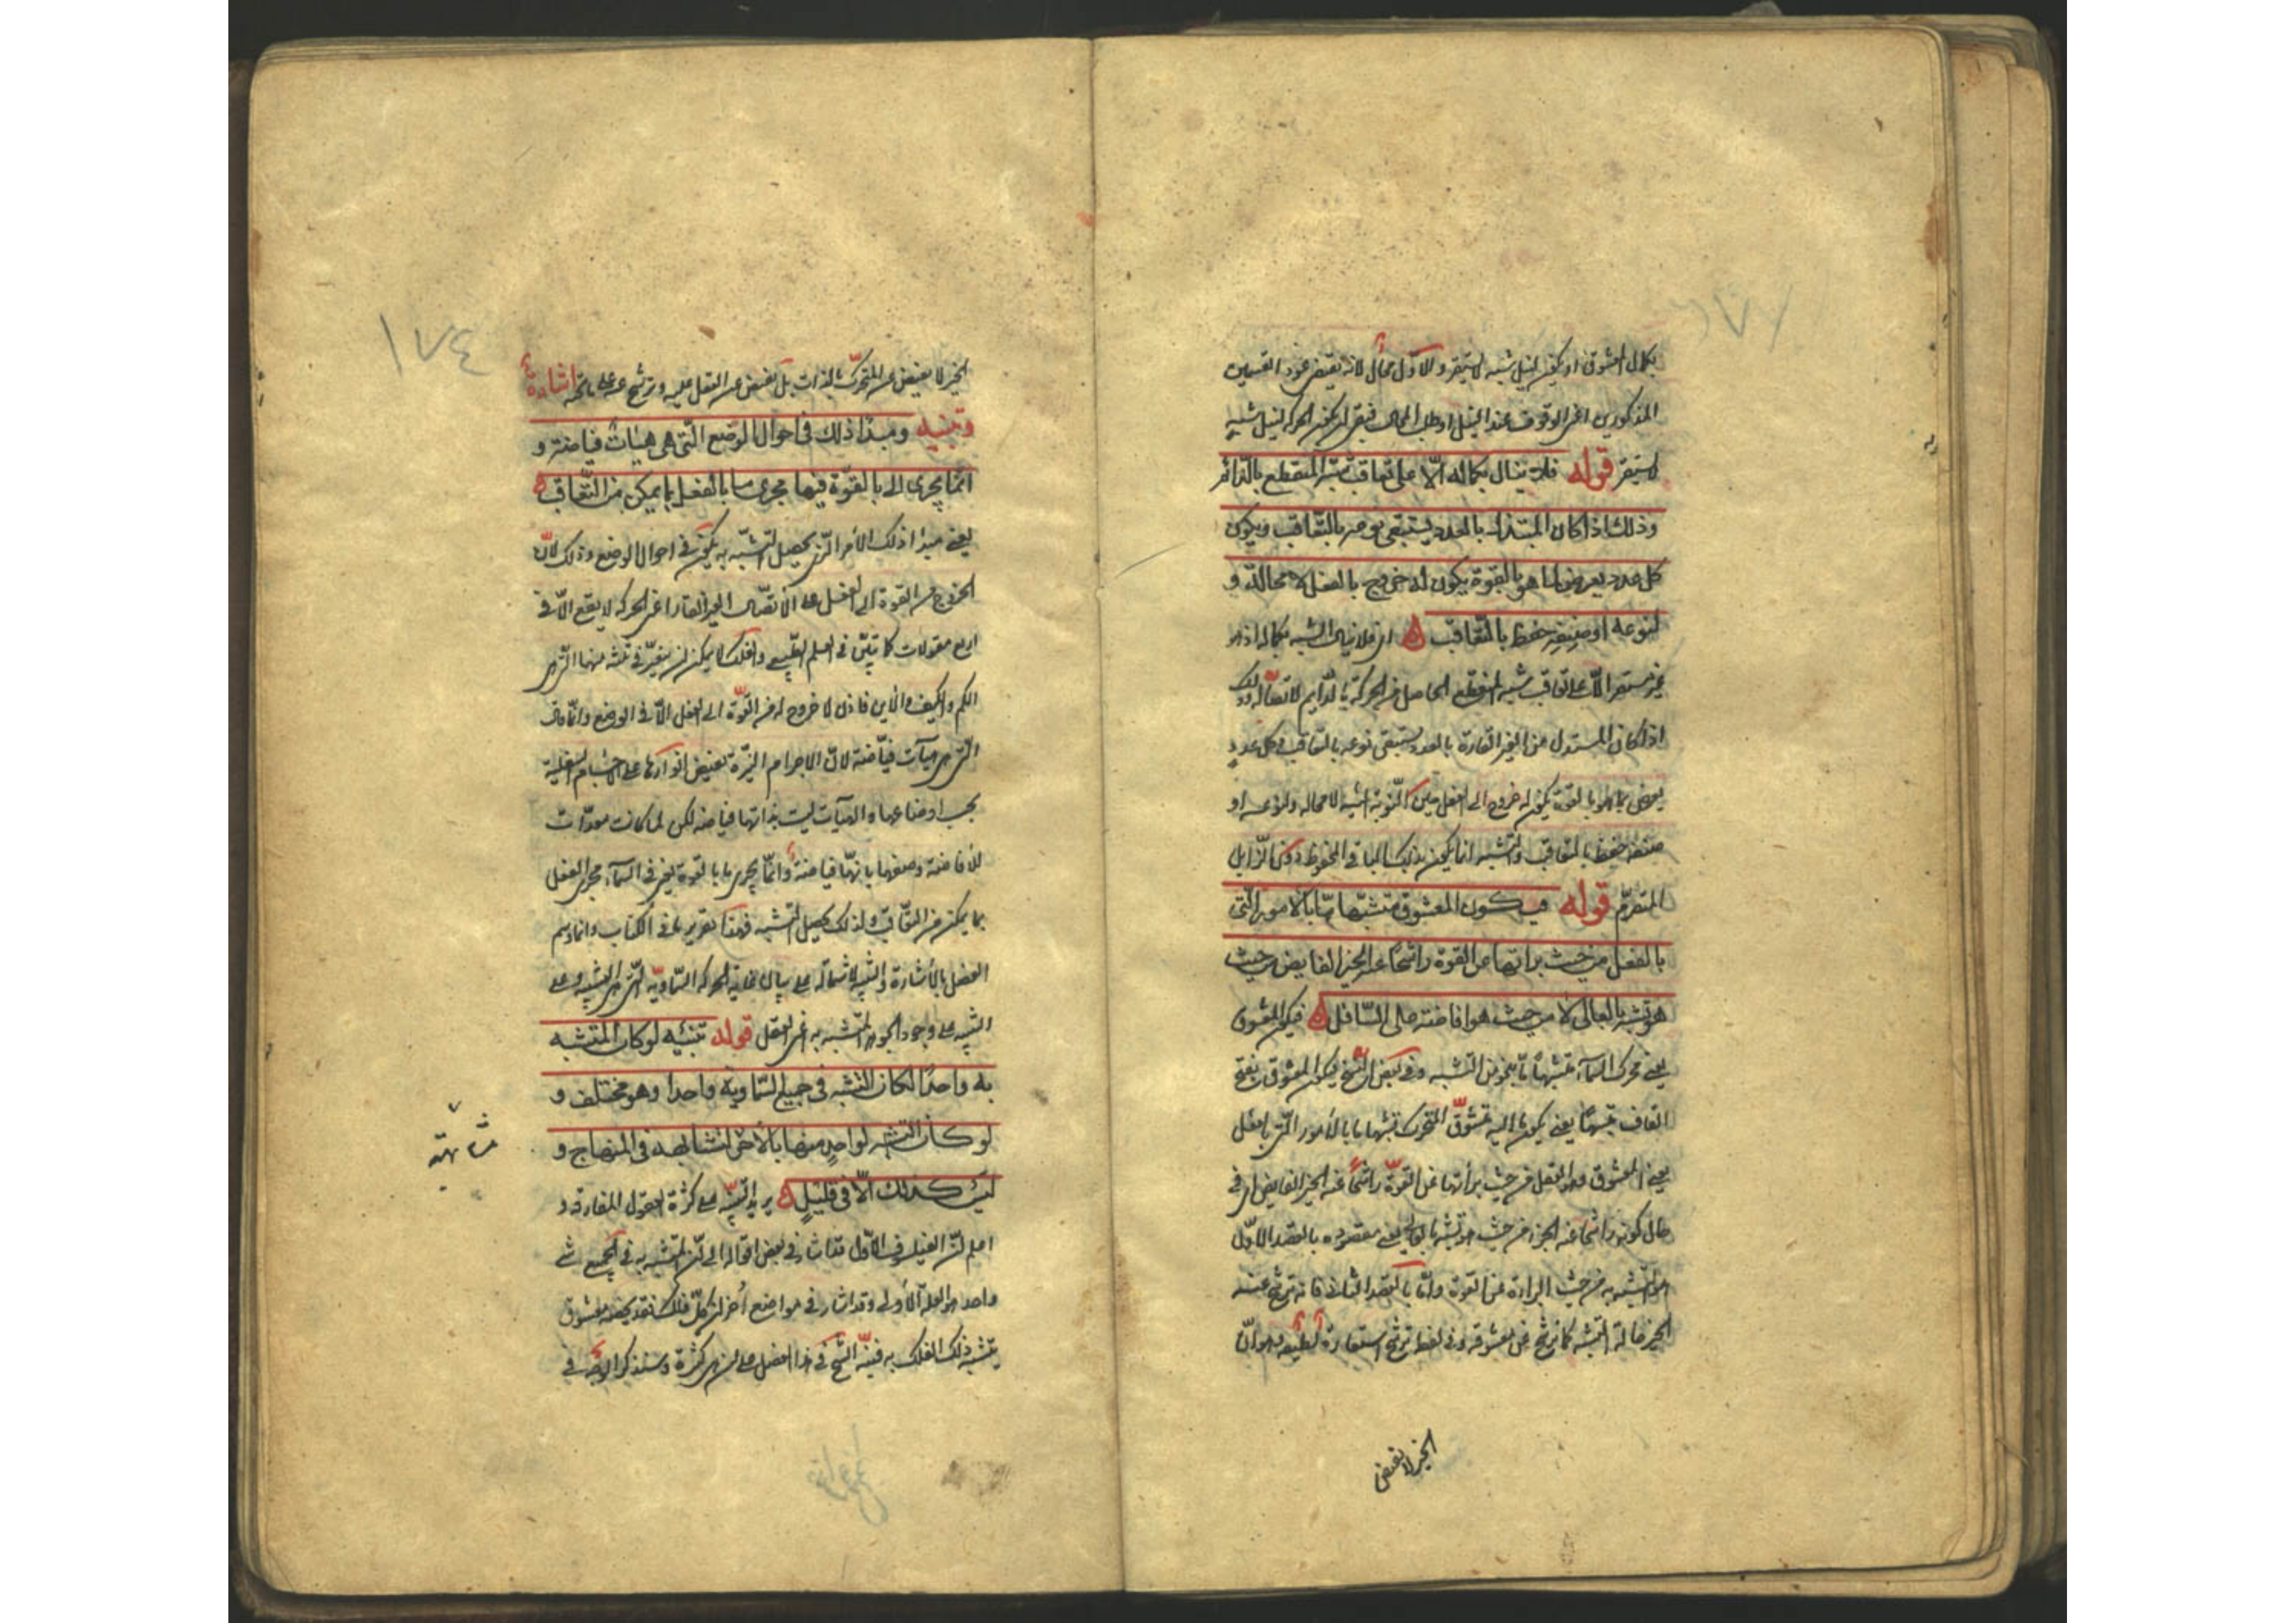 بكمال المعشوق او يكون لنيل شبه لا يستقر والاول محال لانه يقتضى عود القسمين
المذكورين اعنى الوقوف عند النيل او طلب المحال فبقى ان يكون الحركة لنيل شبه
لا يستقر قوله فلا ينال بكماله الا على تعاقب يشبه المنقطع بالدائم
وذلك اذا كان المتبدل بالعدد يستبقى نوعه بالتعاقب ويكون
كل عدد يعرض لما هو بالقوة يكون له خروج بالفعل لا محالة و
لنوعه او صنفه حفظ بالتعاقب اى فلا ينال الشبه بكماله اذ هو
غير مستقر الا على تعاقب يشبه المنقطع الحاصل من الحركة بالدايم لاتصاله وذلك
اذا كان المتبدل من الغير القارة بالعدد يستبقى نوعه بالتعاقب فكل عدد
يعرض مما هو بالقوة يكون له خروج الى الفعل حين النوبة اليه لا محالة ولنوعه او
صنفه حفظ بالتعاقب والتشبه انما يكون بذلك الباقى المحفوظ دون الزايل
المتصرم قوله فيكون المعشوق متشبها ما بالامور التى
بالفعل من حيث براتها عن القوة راشحا عنه الخير الفايض من حيث
هو تشبه بالعالى لا من حيث هو افاضة على السافل فيكون المعشوق
يعنى محرك السماء متشبها ما بنحو من التشبه وفى بعض النسخ فيكون المعشوق بفتح
القاف تشبها يعنى يكون ما اليه تشوق المتحرك تشبها ما بالامور التى بالفعل
يعنى المعشوق وهو العقل من حيث براتها عن القوة راشحا عنه الخير الفايض اى فى
حال كونه راشحا عنه الخير من حيث هو تشبه بالعالى يعنى مقصوده بالقصد الاول
هو التشبه به من حيث البراءة عن القوة واما بالقصد الثانى فانه يرشح عنه
الخير حالة التشبه كما يرشح عن معشوقه وفى لفظ ترشح استعارة لطيفة وهو ان
الخير لا يفيض
١٧٤
الخير لا يفيض عن المتحرك بالذات بل يفيض عن العقل عليه ويرشح عنه على ما تحته اشارة
وتنبيه ومبدا ذلك فى احوال الوضع التى هى هيئات فياضة و
انما يجرى ما بالقوة فيها مجرى ما بالفعل بما يمكن من التعاقب
يعنى مبدا ذلك الامر الذى يحصل التشبه به يكون فى احوال الوضع وذلك لان
الخروج من القوة الى الفعل على الاتصال الغير القار اعنى الحركة لا يقع الا فى
اربع مقولات كما تبين فى العلم الطبيعى والفلك لا يمكن ان يتغير فى ثلثة منها التى هى
الكم والكيف والاين فاذن لا خروج له من القوة الى الفعل الا فى الوضع وانما قال
التى هى هيآت فياضة لان الاجرام النيرة تفيض انوارها على الاجسام السفلية
بحسب اوضاعها والهيآت ليست بذاتها فياضة لكن لما كانت معدات
للافاضة وصفها بانها فياضة وانما يجرى ما بالقوة يعنى فى السماء مجرى الفعل
بما يمكن من التعاقب ولذلك يحصل التشبه فهذا تقرير ما فى الكتاب وانما وسم
الفصل بالاشارة والتنبيه لاشتماله على بيان غاية الحركة السماوية التى هى التشبه وعلى
التنبيه على وجود الجوهر المتشبه به اعنى العقل قوله تنبيه لو كان المتشبه
به واحدا لكان التشبه فى جميع السماوية واحدا وهو مختلف و
لو كان التشبه لواحد منها بالاخر لتشابهه فى المنهاج و
مشابهته
ليس كذلك الا فى قليل يريد التنبيه على كثرة العقول المفارقة و
اعلم ان الفيلسوف الاول قد اشار فى بعض اقواله الى ان المتشبه به فى الجميع شى
واحد هو العلة الاولى وقد اشار فى مواضع اخر ان لكل فلك فقد يخصه معشوق
يتشبه ذلك الفلك به فنبه الشيخ فى هذا الفصل على ان هى كثرة وسنذكر الوجه فى